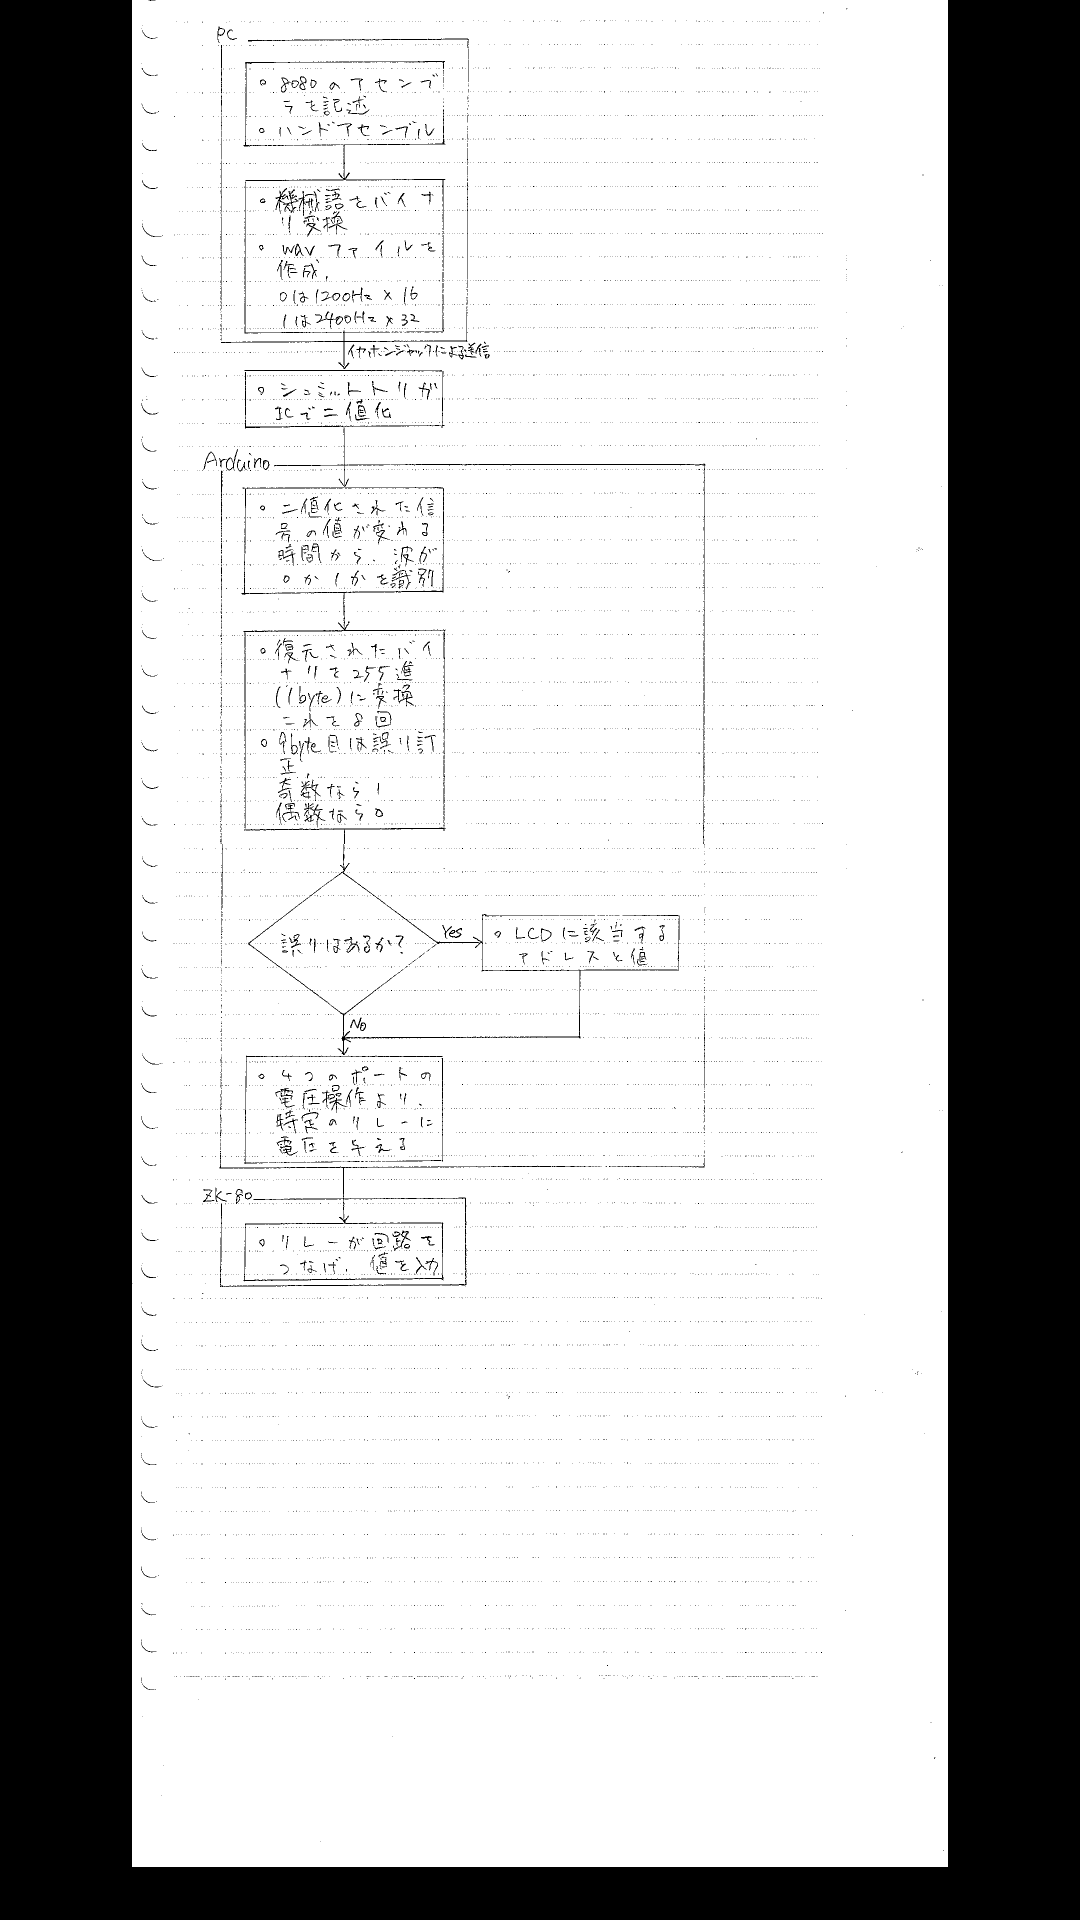 PC
○ 8080のアセンブ
ラを記述
○ ハンドアセンブル
○ 機械語をバイナ
リ変換
○ wavファイルを
作成.
0は1200Hz × 16
1は2400Hz × 32
イヤホンジャックによる送信
○ シュミットトリガ
ICで二値化
Arduino
○ 二値化された信
号の値が変わる
時間から、波が
0か1かを識別
○ 復元されたバイ
ナリを255進
(1byte)に変換
これを8回
○ 9byte目は誤り訂
正,
奇数なら1
偶数なら0
誤りはあるか?
Yes
○ LCDに該当する
アドレスと値
No
○ 4つのポートの
電圧操作より、
特定のリレーに
電圧を与える
ZK-80
○ リレーが回路を
つなげ、値を入力